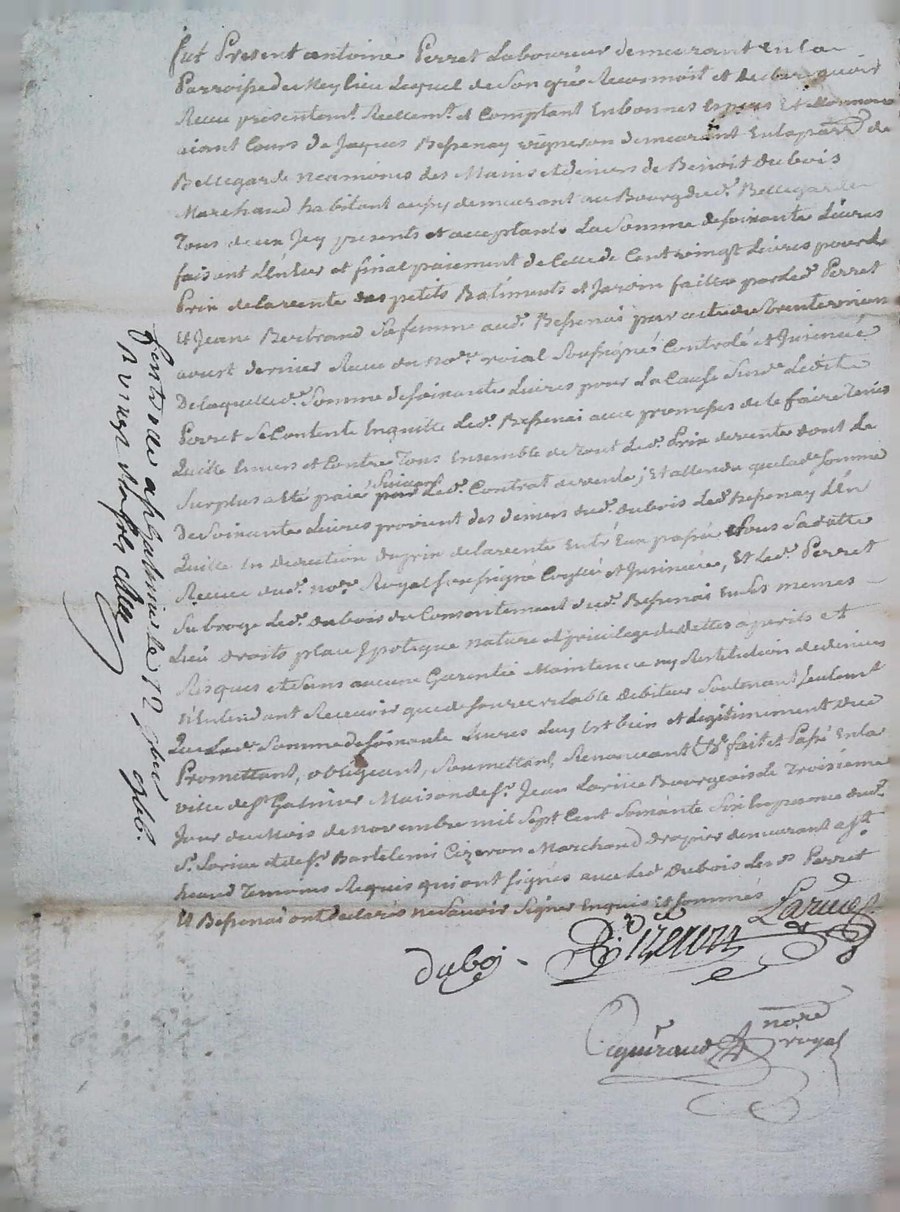 fut Present antoine Perret Laboureur demeurant En la
Parroisse de Meylieu Lequel de Son gré Reconnoit et declare avoir
Receu presentemt Réellemt et Comptant En bonnes Especes Et Monnoye
aiant Cours de Jaques Bessenay vigneron demeurant En la parr de
Bellegarde neamoins des Mains et deniers de Benoit dubois
Marchand habitant aussy demeurant au Bourg dudt Bellegarde
Tous deux Icy presents et acceptants La Somme de soixante Livres
faisant L'entier et final paiement de Celle de Cent vingt Livres pour Le
Prix de la vente des petits Batiments et Jardin faitte par led Perret
Et Jeane Bertrand Sa femme aud. Bessenai par acte du trente
aoust dernier Receu du nore roial Soussigné Controlé et Insinué
De laquelle de Somme de soixante Livres pour La Cause Susd Ledit
Perret Se Contente En quitte Led. Bessenai avec promesses de le faire Tenir
Quitte Envers et Contre Tous Ensemble de tout Led. Prix de vente dont Le
Surplus a été paié suivant Led. Contrat de vente ; Et attendu que lade Somme
De Soixante Livres provient des deniers dud. dubois Led. Bessenay L'En
quitte En deduction du prix de la vente Entr'Eux passé Sous Sa datte
Receue dud. nore Royal Soussigné Controllé et Insinuée, Et Led. Perret
Subroge Led. dubois du Consentement dud. Bessenai En Ses memes
Lieu droits place Ipotéque nature et privilege de dettes a perils et
Risques et Sans aucune Garentie Maintenue ny Restitution de deniers
n'Entendant Recevoir que de Son veritable debiteur Soutenant seulemt
Que Lade Somme de soixante Livres Luy Est bien et Legitimement due
Promettant, obligeant, Soumettant, Renoncant & fait et Passé En la
ville de St Galmier Maison de Sr Jean Larive Bourgeois Le Troisieme
Jour du Mois de novembre mil Sept Cent Soixante Six En presence dud.
Sr Larive et de Sr Bartelemi Cizeron Marchand drapier demeurant a St
Temoins Requis qui ont Signés avec Led. Dubois Led. Perret
Et Bessenai ont declarés ne Savoir Signer Enquis Et Sommés
Larive
dubois Cizeron
nore
royal
St Galmier le 12 9bre
766.